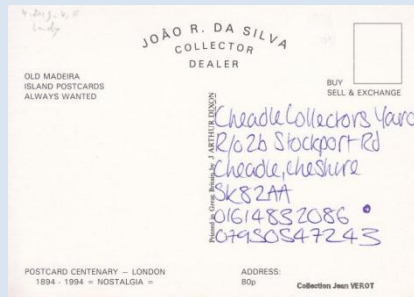 JOÃO R. DA SILVA
COLLECTOR
DEALER
OLD MADEIRA
ISLAND POSTCARDS
ALWAYS WANTED
BUY
SELL & EXCHANGE
Printed in Great Britain by J ARTHUR DIXON
Cheadle Collectors Yard
R/o 26 Stockport Rd
Cheadle, Cheshire
SK8 2AA
01614832086
07950547243
POSTCARD CENTENARY – LONDON
1894 - 1994 = NOSTALGIA =
ADDRESS:
80p
Collection Jean VEROT